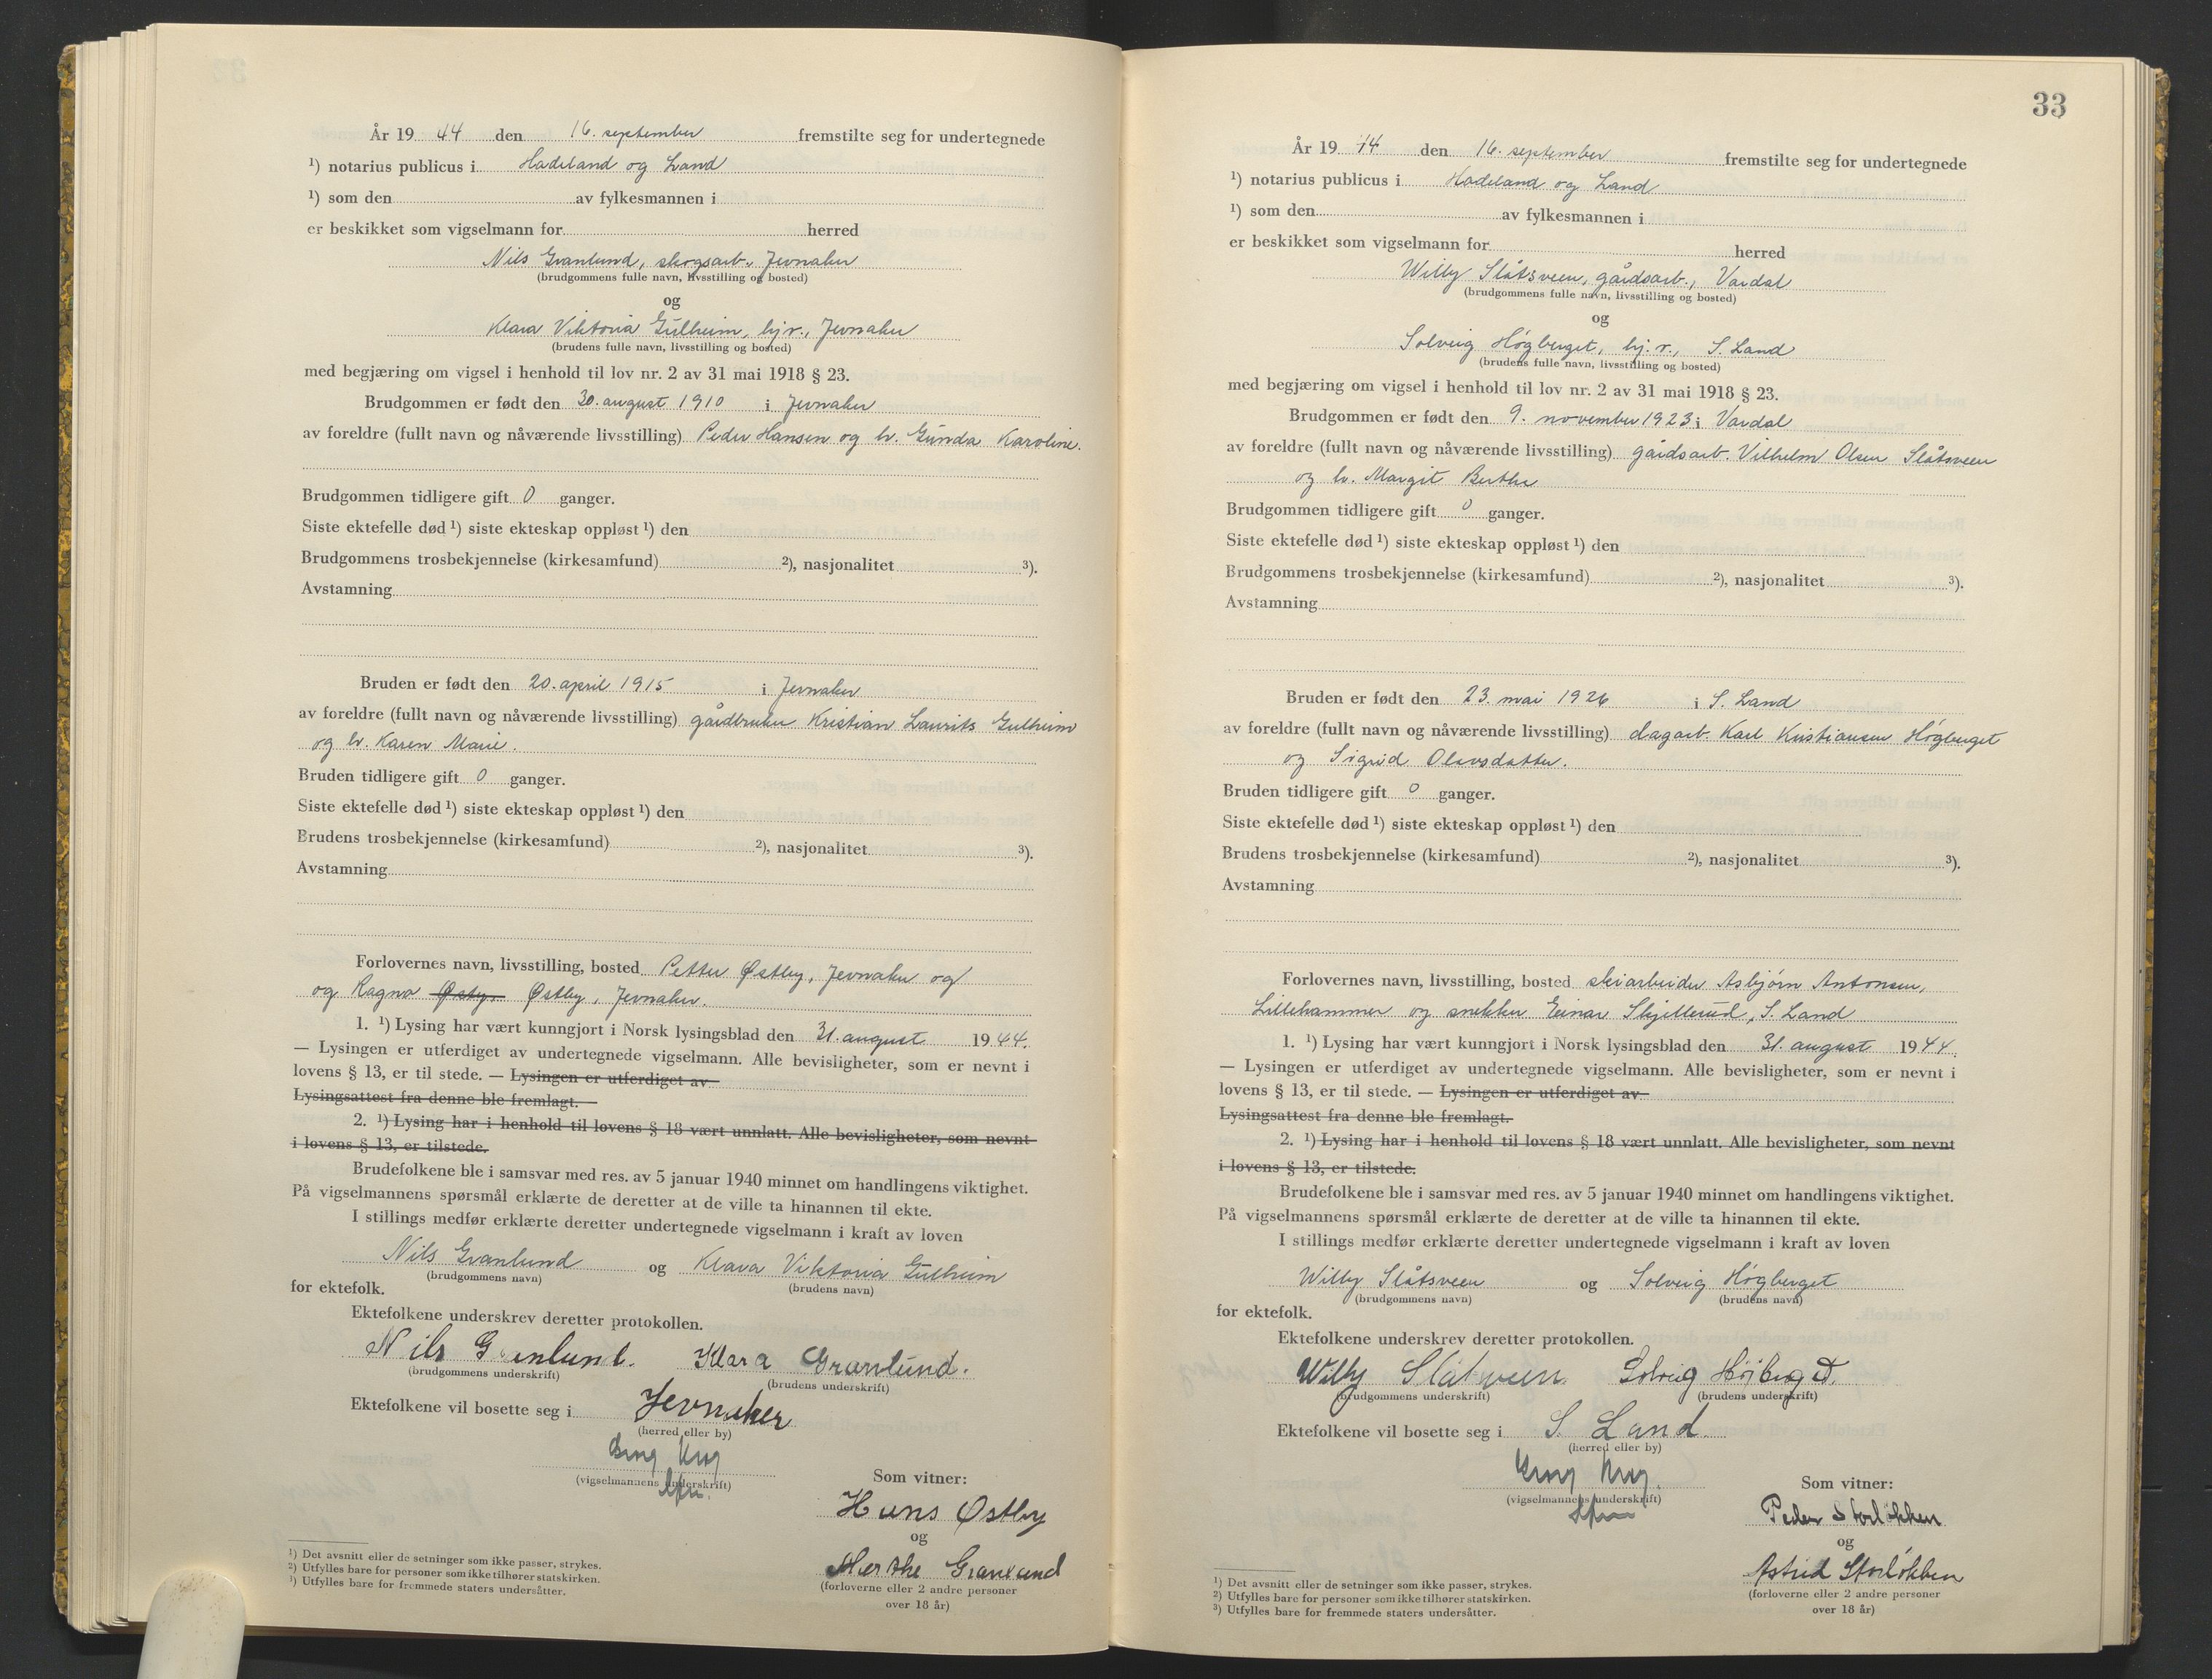 År 19 44 den 16. september fremstilte seg for undertegnede
¹) notarius publicus i Hadeland og Land
¹) som den av fylkesmannen i
er beskikket som vigselmann for herred
Nils Granlund, skogsarb., Jevnaker
(brudgommens fulle navn, livsstilling og bosted)
og
Klara Viktoria Gulheim, hj.v., Jevnaker
(brudens fulle navn, livsstilling og bosted)
med begjæring om vigsel i henhold til lov nr. 2 av 31 mai 1918 § 23.
Brudgommen er født den 30. august 1910 i Jevnaker
av foreldre (fullt navn og nåværende livsstilling) Peder Hansen og h. Gunda Karoline.
Brudgommen tidligere gift 0 ganger.
Siste ektefelle død ¹) siste ekteskap oppløst ¹) den
Brudgommens trosbekjennelse (kirkesamfund) ²), nasjonalitet ³).
Avstamning
Bruden er født den 20. april 1915 i Jevnaker
av foreldre (fullt navn og nåværende livsstilling) gårdbruker Kristian Laurits Gulheim
og h. Karen Marie.
Bruden tidligere gift 0 ganger.
Siste ektefelle død ¹) siste ekteskap oppløst ¹) den
Brudens trosbekjennelse (kirkesamfund) ²), nasjonalitet ³).
Avstamning
Forlovernes navn, livsstilling, bosted Petter Østby, Jevnaker og
og Ragna Østby, Jevnaker.
1. ¹) Lysing har vært kunngjort i Norsk lysingsblad den 31. august 19 44.
— Lysingen er utferdiget av undertegnede vigselmann. Alle bevisligheter, som er nevnt i
lovens § 13, er til stede. — Lysingen er utferdiget av
Lysingsattest fra denne ble fremlagt. —
2. ¹) Lysing har i henhold til lovens § 18 vært unnlatt. Alle bevisligheter, som nevnt
i lovens § 13, er tilstede.
Brudefolkene ble i samsvar med res. av 5 januar 1940 minnet om handlingens viktighet.
På vigselmannens spørsmål erklærte de deretter at de ville ta hinannen til ekte.
I stillings medfør erklærte deretter undertegnede vigselmann i kraft av loven
Nils Granlund og Klara Viktoria Gulheim
(brudgommens navn) (brudens navn)
for ektefolk.
Ektefolkene underskrev deretter protokollen.
Nils Granlund. Klara Granlund.
(brudgommens underskrift) (brudens underskrift)
Ektefolkene vil bosette seg i Jevnaker
(herred eller by)
(vigselmannens underskrift)
Som vitner:
Hans Østby
og
Merthe Granlund
(forloverne eller 2 andre personer
over 18 år)
¹) Det avsnitt eller de setninger som ikke passer, strykes.
²) Utfylles bare for personer som ikke tilhører statskirken.
³) Utfylles bare for fremmede staters undersåtter.
33
År 19 44 den 16. september fremstilte seg for undertegnede
¹) notarius publicus i Hadeland og Land
¹) som den av fylkesmannen i
er beskikket som vigselmann for herred
Willy Slåtsveen, gårdsarb., Vardal
(brudgommens fulle navn, livsstilling og bosted)
og
Solveig Høgberget, hj.v., S. Land
(brudens fulle navn, livsstilling og bosted)
med begjæring om vigsel i henhold til lov nr. 2 av 31 mai 1918 § 23.
Brudgommen er født den 9. november 1923 i Vardal
av foreldre (fullt navn og nåværende livsstilling) gårdsarb. Vilhelm Olsen Slåtsveen
og h. Margit Berthe
Brudgommen tidligere gift 0 ganger.
Siste ektefelle død ¹) siste ekteskap oppløst ¹) den
Brudgommens trosbekjennelse (kirkesamfund) ²), nasjonalitet ³).
Avstamning
Bruden er født den 23. mai 1926 i S. Land
av foreldre (fullt navn og nåværende livsstilling) dagarb. Karl Kristiansen Høgberget
og Sigrid Olavsdatter.
Bruden tidligere gift 0 ganger.
Siste ektefelle død ¹) siste ekteskap oppløst ¹) den
Brudens trosbekjennelse (kirkesamfund) ²), nasjonalitet ³).
Avstamning
Forlovernes navn, livsstilling, bosted skiarbeider Asbjørn Antonsen,
Lillehammer og snekker Einar Skjillerud, S. Land
1. ¹) Lysing har vært kunngjort i Norsk lysingsblad den 31. august 19 44.
— Lysingen er utferdiget av undertegnede vigselmann. Alle bevisligheter, som er nevnt i
lovens § 13, er til stede. — Lysingen er utferdiget av
Lysingsattest fra denne ble fremlagt.
2. ¹) Lysing har i henhold til lovens § 18 vært unnlatt. Alle bevisligheter, som nevnt
i lovens § 13, er tilstede.
Brudefolkene ble i samsvar med res. av 5 januar 1940 minnet om handlingens viktighet.
På vigselmannens spørsmål erklærte de deretter at de ville ta hinannen til ekte.
I stillings medfør erklærte deretter undertegnede vigselmann i kraft av loven
Willy Slåtsveen og Solveig Høgberget
(brudgommens navn) (brudens navn)
for ektefolk.
Ektefolkene underskrev deretter protokollen.
Willy Slåtsveen. Solveig Høiberget.
(brudgommens underskrift) (brudens underskrift)
Ektefolkene vil bosette seg i S. Land
(herred eller by)
(vigselmannens underskrift)
Som vitner:
Peder Storløkken
og
Astrid Storløkken
(forloverne eller 2 andre personer
over 18 år)
¹) Det avsnitt eller de setninger som ikke passer, strykes.
²) Utfylles bare for personer som ikke tilhører statskirken.
³) Utfylles bare for fremmede staters undersåtter.